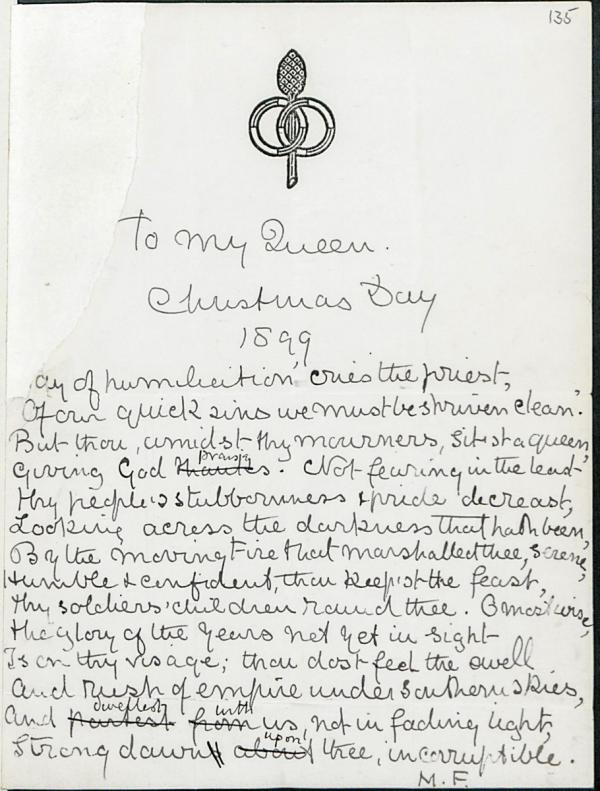 135
To my Queen.
Christmas Day
1899
ay of humiliation, cries the priest,
Of our quick sins we must be shriven clean.
But thou, amidst thy mourners, sit'st a queen,
praise
Giving God thanks. Not fearing in the least
Thy people's stubbornness & pride decreast,
Looking across the darkness that hath been,
By the moving Fire that marshalled thee, serene,
Humble & confident, thou keep'st the feast,
Thy soldiers' children round thee. O most wise,
The glory of the years not yet in sight
Is on thy visage; thou dost feel the swell
And rush of empire under southern skies,
dwellest with
And partest from us, not in fading light,
upon
Strong dawn about thee, incorruptible.
M.F.